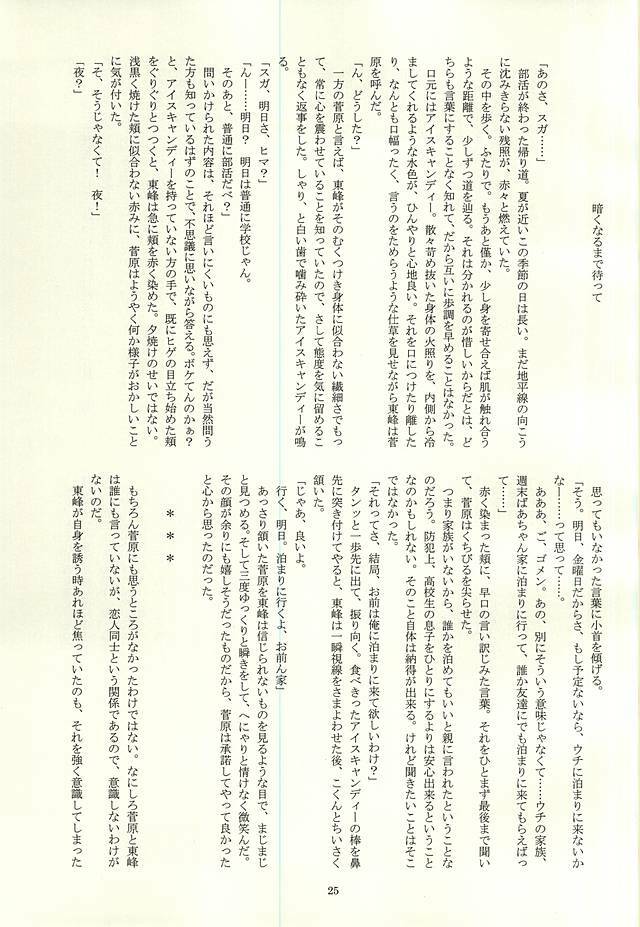 暗くなるまで待って
「あのさ、スガ……」
部活が終わった帰り道。夏が近いこの季節の日は長い。まだ地平線の向こう
に沈みきらない残照が、赤々と燃えていた。
その中を歩く。ふたりで。もうあと僅か、少し身を寄せ合えば肌が触れ合う
ような距離で、少しずつ道を辿る。それは分かれるのが惜しいからだとは、ど
ちらも言葉にすることなく知れて、だから互いに歩調を早めることはなかった。
口元にはアイスキャンディー。散々苛め抜いた身体の火照りを、内側から冷
ましてくれるような水色が、ひんやりと心地良い。それを口につけたり離した
り、なんとも口幅ったく、言うのをためらうような仕草を見せながら東峰は菅
原を呼んだ。
「ん、どうした？」
一方の菅原と言えば、東峰がそのむくつけき身体に似合わない繊細さでもっ
て、常に心を震わせていることを知っていたので、さして態度を気に留めるこ
ともなく返事をした。しゃり、と白い歯で噛み砕いたアイスキャンディーが鳴
る。
「スガ、明日さ、ヒマ？」
「んー……明日？　明日は普通に学校じゃん。
そのあと、普通に部活だべ？」
問いかけられた内容は、それほど言いにくいものにも思えず、だが当然問う
た方も知っているはずのことで、不思議に思いながら答える。ボケてんのかぁ？
と、アイスキャンディーを持っていない方の手で、既にヒゲの目立ち始めた頬
をぐりぐりとつつくと、東峰は急に頬を赤く染めた。夕焼けのせいではない。
浅黒く焼けた頬に似合わない赤みに、菅原はようやく何か様子がおかしいこと
に気が付いた。
「そ、そうじゃなくて！　夜！」
「夜？」
思ってもいなかった言葉に小首を傾げる。
「そう。明日、金曜日だからさ、もし予定ないなら、ウチに泊まりに来ないか
なー……って思って……。
あああ、ご、ゴメン。あの、別にそういう意味じゃなくて……ウチの家族、
週末ばあちゃん家に泊まりに行って、誰か友達にでも泊まりに来てもらえばっ
て……」
赤く染まった頬に、早口の言い訳じみた言葉。それをひとまず最後まで聞い
て、菅原はくちびるを尖らせた。
つまり家族がいないから、誰かを泊めてもいいと親に言われたということな
のだろう。防犯上、高校生の息子をひとりにするよりは安心出来るということ
なのかもしれない。そのこと自体は納得が出来る。けれど聞きたいことはそこ
ではなかった。
「それってさ、結局、お前は俺に泊まりに来て欲しいわけ？」
タンッと一歩先に出て、振り向く。食べきったアイスキャンディーの棒を鼻
先に突き付けてやると、東峰は一瞬視線をさまよわせた後、こくんとちいさく
頷いた。
「じゃあ、良いよ。
行く、明日。泊まりに行くよ、お前ん家」
あっさり頷いた菅原を東峰は信じられないものを見るような目で、まじまじ
と見つめる。そして二度ゆっくりと瞬きをして、へにゃりと情けなく微笑んだ。
その顔が余りにも嬉しそうだったものだから、菅原は承諾してやって良かった
と心から思ったのだった。
＊　＊　＊
もちろん菅原にも思うところがなかったわけではない。なにしろ菅原と東峰
は誰にも言っていないが、恋人同士という関係であるので、意識しないわけが
ないのだ。
東峰が自身を誘う時あれほど焦っていたのも、それを強く意識してしまった
25